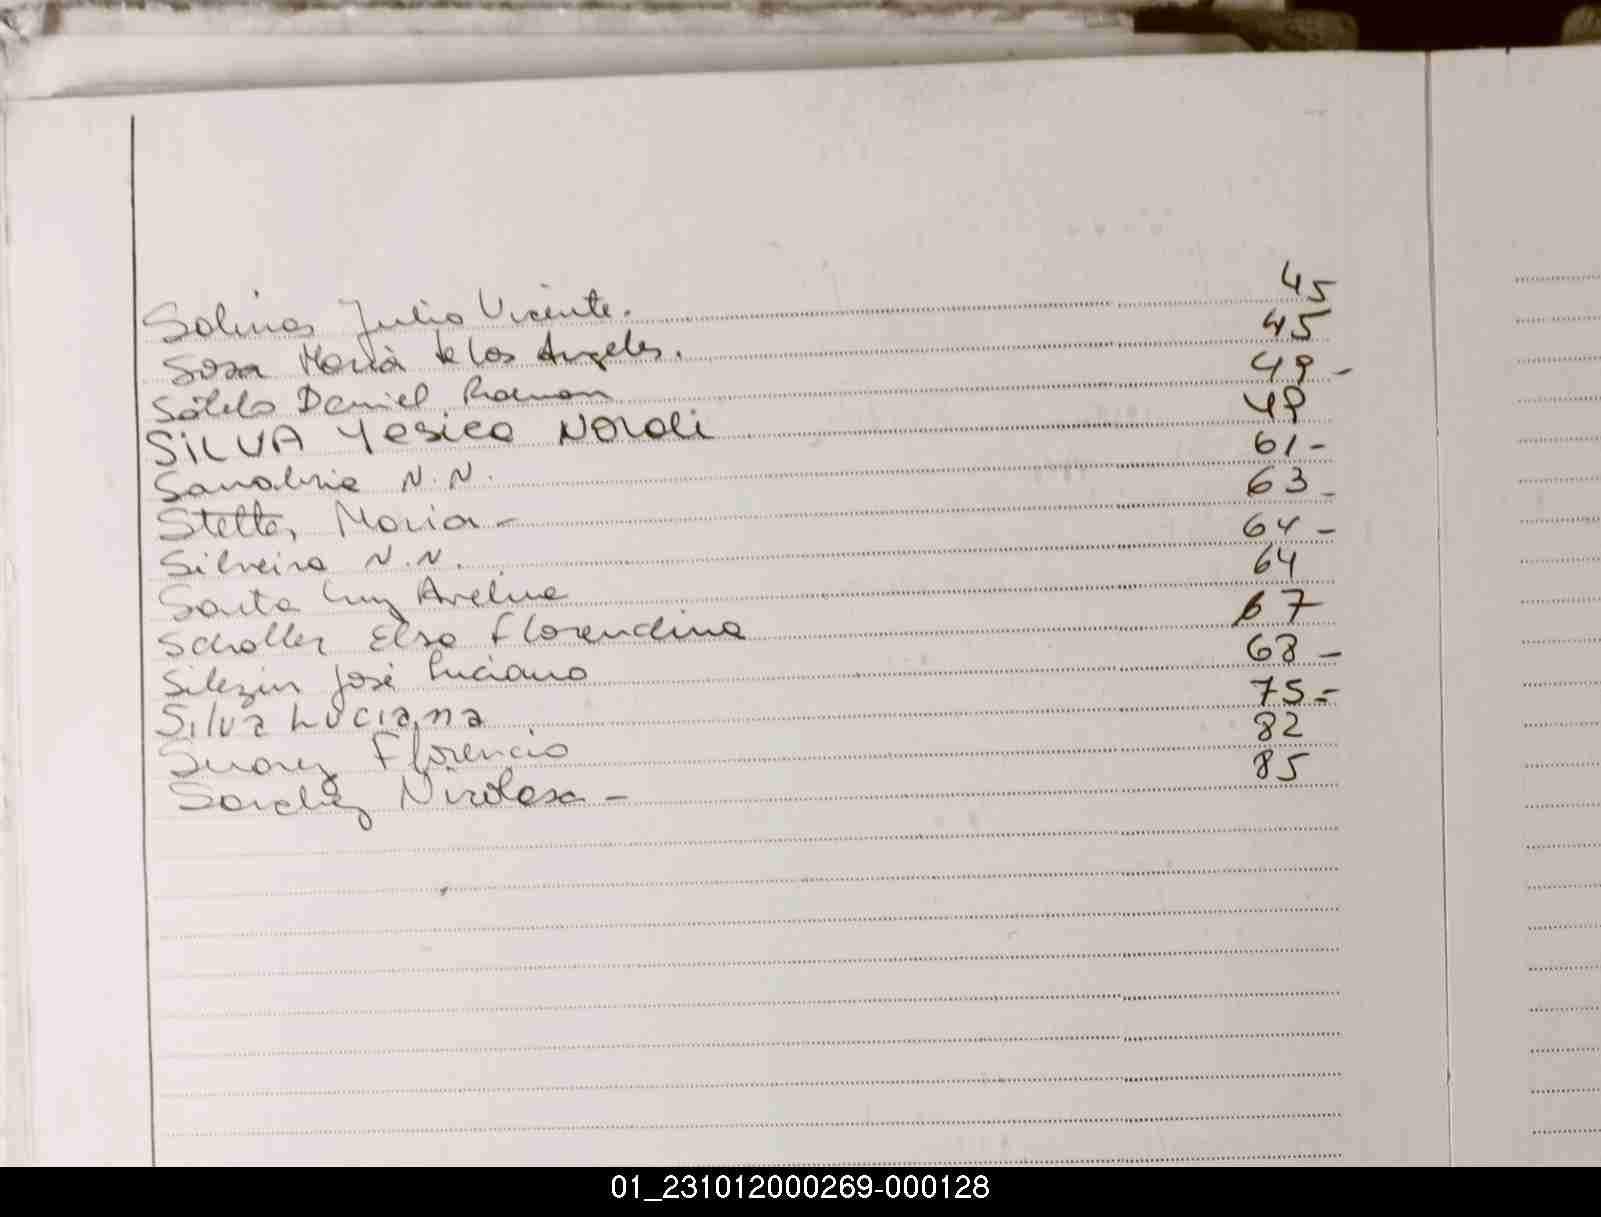 Salinas Julio Vicente. 45
Sosa María de los Angeles. 45
Sotelo Daniel Ramon 49 -
SILVA Yesica Noroli 49
Sanabria N.N. 61 -
Stella, Maria - 63 -
Silveira N.N. 64 -
Santa Cruz Avelina 64
Scholler Elsa Florendina 67
Silezin José Luciano 68 -
Silva Luciana 75 -
Suarez Florencio 82
Sanchez Nicolasa - 85
01_231012000269-000128